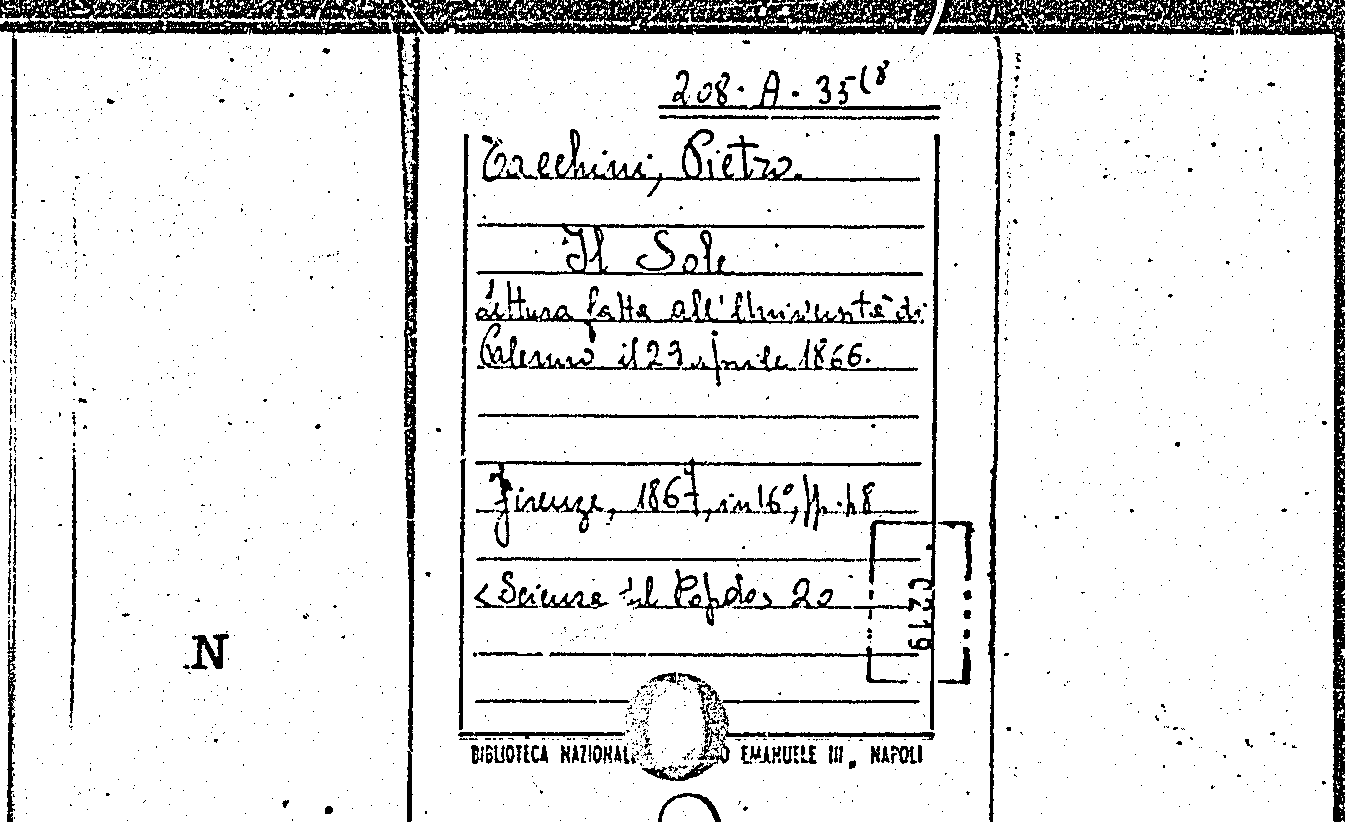 208. A. 35(8
Tacchini, Pietro.
Il Sole
Lettura fatta all'Università di
Palermo il 23 aprile 1866.
Firenze, 1867, in 16°, pp. 48
<Scienza del Popolo> 20
N
BIBLIOTECA NAZIONALE EMANUELE III, NAPOLI